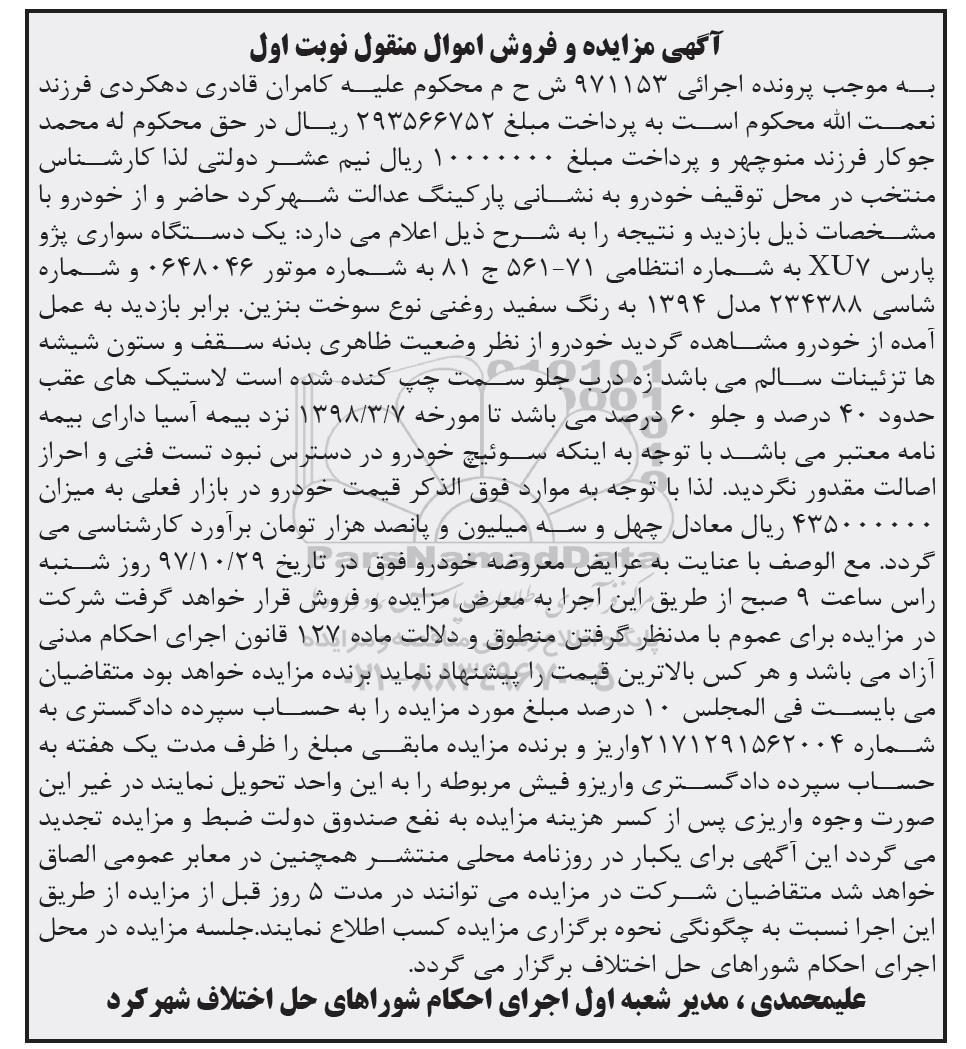 آگهی مزایده و فروش اموال منقول نوبت اول
به موجب پرونده اجرائی ۹۷۱۱۵۳ ش ح م محکوم علیه کامران قادری دهکردی فرزند
نعمت الله محکوم است به پرداخت مبلغ ۲۹۳۵۶۶۷۵۲ ریال در حق محکوم له محمد
جوکار فرزند منوچهر و پرداخت مبلغ ۱۰۰۰۰۰۰۰ ریال نیم عشر دولتی لذا کارشناس
منتخب در محل توقیف خودرو به نشانی پارکینگ عدالت شهرکرد حاضر و از خودرو با
مشخصات ذیل بازدید و نتیجه را به شرح ذیل اعلام می دارد: یک دستگاه سواری پژو
پارس XU۷ به شماره انتظامی ۷۱-۵۶۱ ج ۸۱ به شماره موتور ۰۶۴۸۰۴۶ و شماره
شاسی ۲۳۴۳۸۸ مدل ۱۳۹۴ به رنگ سفید روغنی نوع سوخت بنزین. برابر بازدید به عمل
آمده از خودرو مشاهده گردید خودرو از نظر وضعیت ظاهری بدنه سقف و ستون شیشه
ها تزئینات سالم می باشد زه درب جلو سمت چپ کنده شده است لاستیک های عقب
حدود ۴۰ درصد و جلو ۶۰ درصد می باشد تا مورخه ۱۳۹۸/۳/۷ نزد بیمه آسیا دارای بیمه
نامه معتبر می باشد با توجه به اینکه سوئیچ خودرو در دسترس نبود تست فنی و احراز
اصالت مقدور نگردید. لذا با توجه به موارد فوق الذکر قیمت خودرو در بازار فعلی به میزان
۴۳۵۰۰۰۰۰۰ ریال معادل چهل و سه میلیون و پانصد هزار تومان برآورد کارشناسی می
گردد. مع الوصف با عنایت به عرایض معروضه خودرو فوق در تاریخ ۹۷/۱۰/۲۹ روز شنبه
راس ساعت ۹ صبح از طریق این اجرا به معرض مزایده و فروش قرار خواهد گرفت شرکت
در مزایده برای عموم با مدنظر گرفتن منطوق و دلالت ماده ۱۲۷ قانون اجرای احکام مدنی
آزاد می باشد و هر کس بالاترین قیمت را پیشنهاد نماید برنده مزایده خواهد بود متقاضیان
می بایست فی المجلس ۱۰ درصد مبلغ مورد مزایده را به حساب سپرده دادگستری به
شماره ۲۱۷۱۲۹۱۵۶۲۰۰۴واریز و برنده مزایده مابقی مبلغ را ظرف مدت یک هفته به
حساب سپرده دادگستری واریزو فیش مربوطه را به این واحد تحویل نمایند در غیر این
صورت وجوه واریزی پس از کسر هزینه مزایده به نفع صندوق دولت ضبط و مزایده تجدید
می گردد این آگهی برای یکبار در روزنامه محلی منتشر همچنین در معابر عمومی الصاق
خواهد شد متقاضیان شرکت در مزایده می توانند در مدت ۵ روز قبل از مزایده از طریق
این اجرا نسبت به چگونگی نحوه برگزاری مزایده کسب اطلاع نمایند.جلسه مزایده در محل
اجرای احکام شوراهای حل اختلاف برگزار می گردد.
علیمحمدی ، مدیر شعبه اول اجرای احکام شوراهای حل اختلاف شهرکرد
ParsNamadData